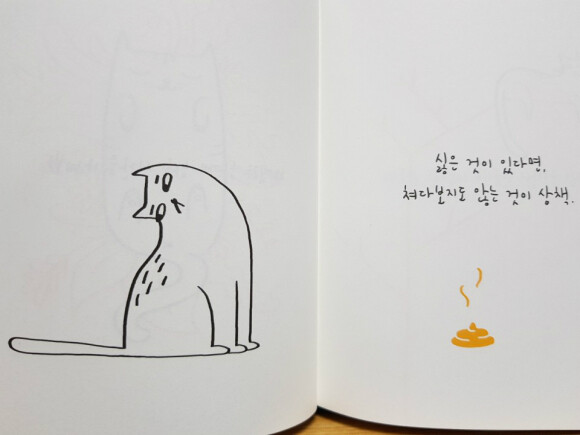 싫은 것이 있다면,
쳐다보지도 않는 것이 상책.